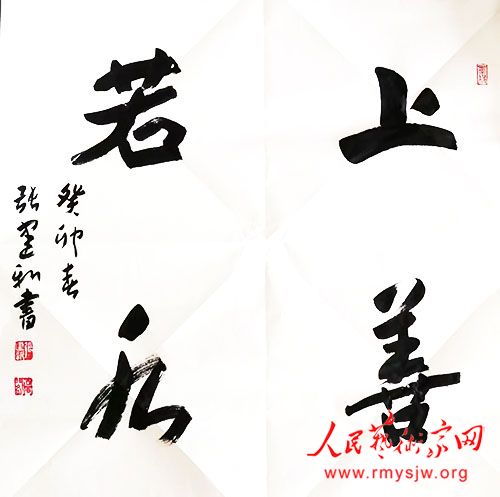 上善
若水
癸卯春
张建和書
人民藝術家网
www.rmysjw.org